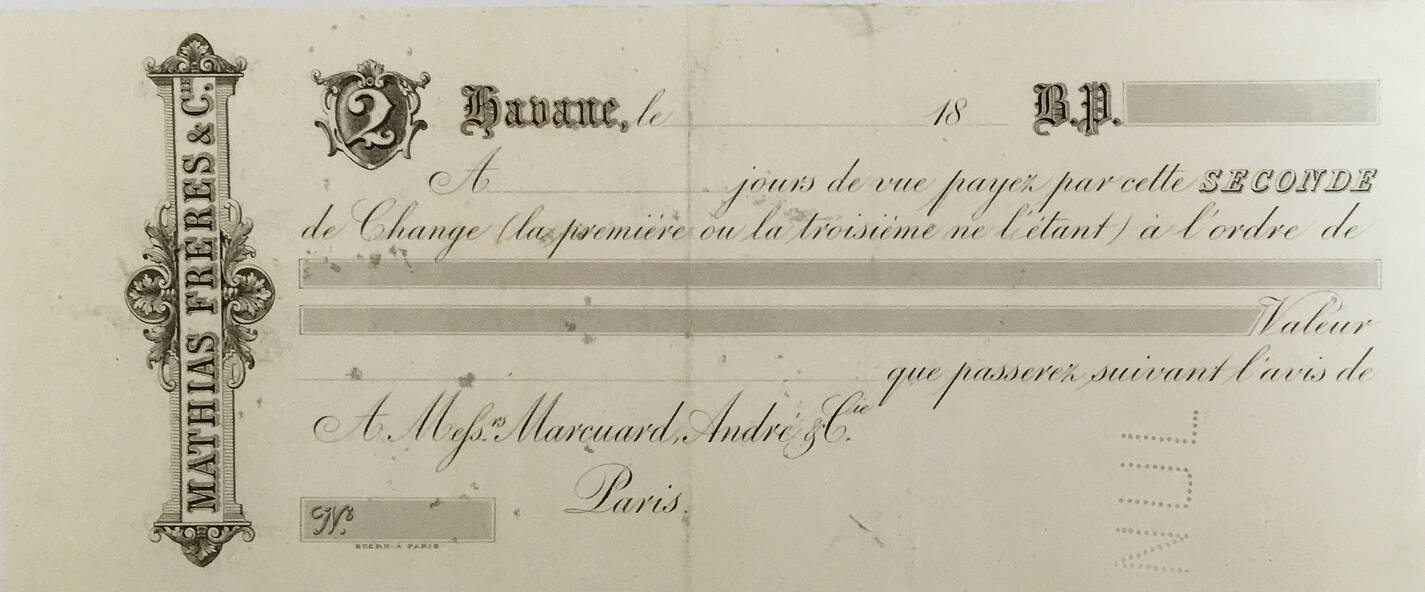 MATHIAS FRERES & C.IE
2 Havane, le 18 B.P.
A jours de vue payez par cette SECONDE
de Change (la première ou la troisième ne l'étant) à l'ordre de
Valeur
que passerez suivant l'avis de
A Mess.rs Marcuard, André & C.ie
Paris.
No.
STERN À PARIS
NUL